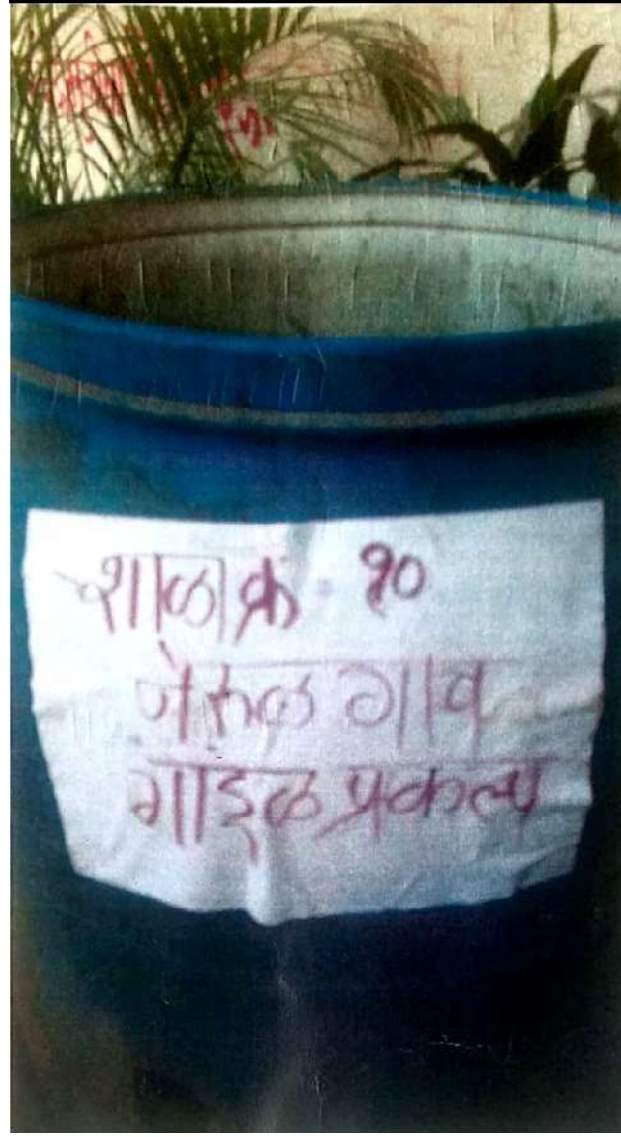 शाळा क्र. १०
नेरुळ गाव
गांडूळ प्रकल्प